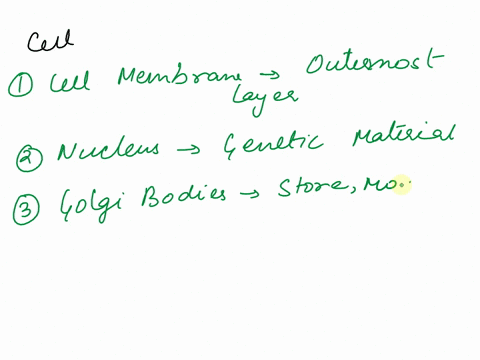 Cell
① Cell Membrane → Outermost
Layer
② Nucleus → Genetic Material
③ Golgi Bodies → Store, Mo